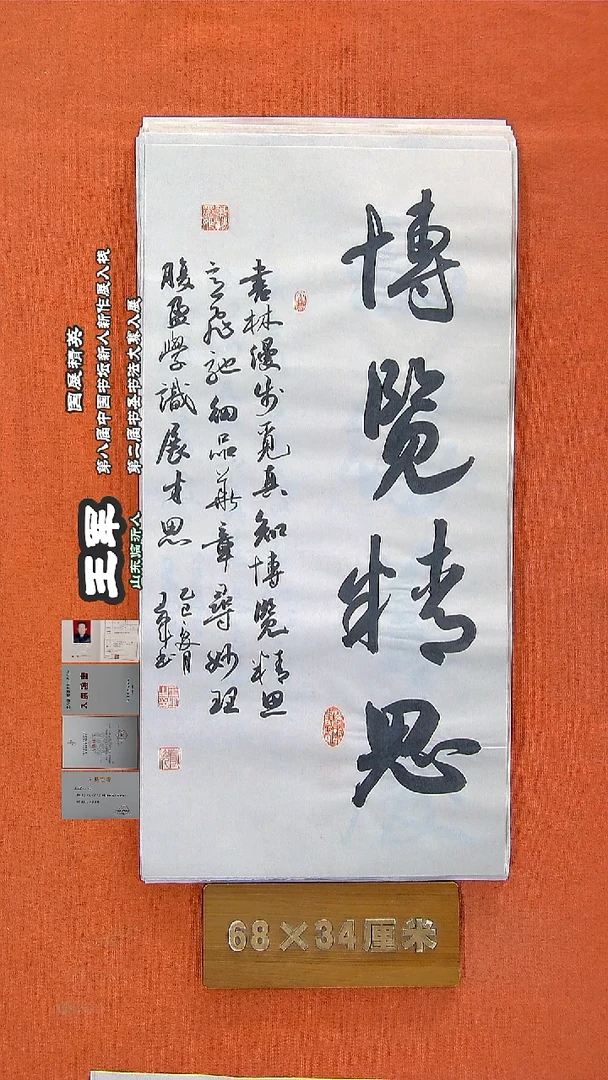 博覽精思
書林漫步覓真知博覽精思
意飛馳細品華章尋妙理
腹盈學識展才思
乙巳夏月
王軍書
国展精英
第八届中国书坛新人新作展入视
第二届书圣书法大赛入展
王军
山东临沂人
68×34厘米